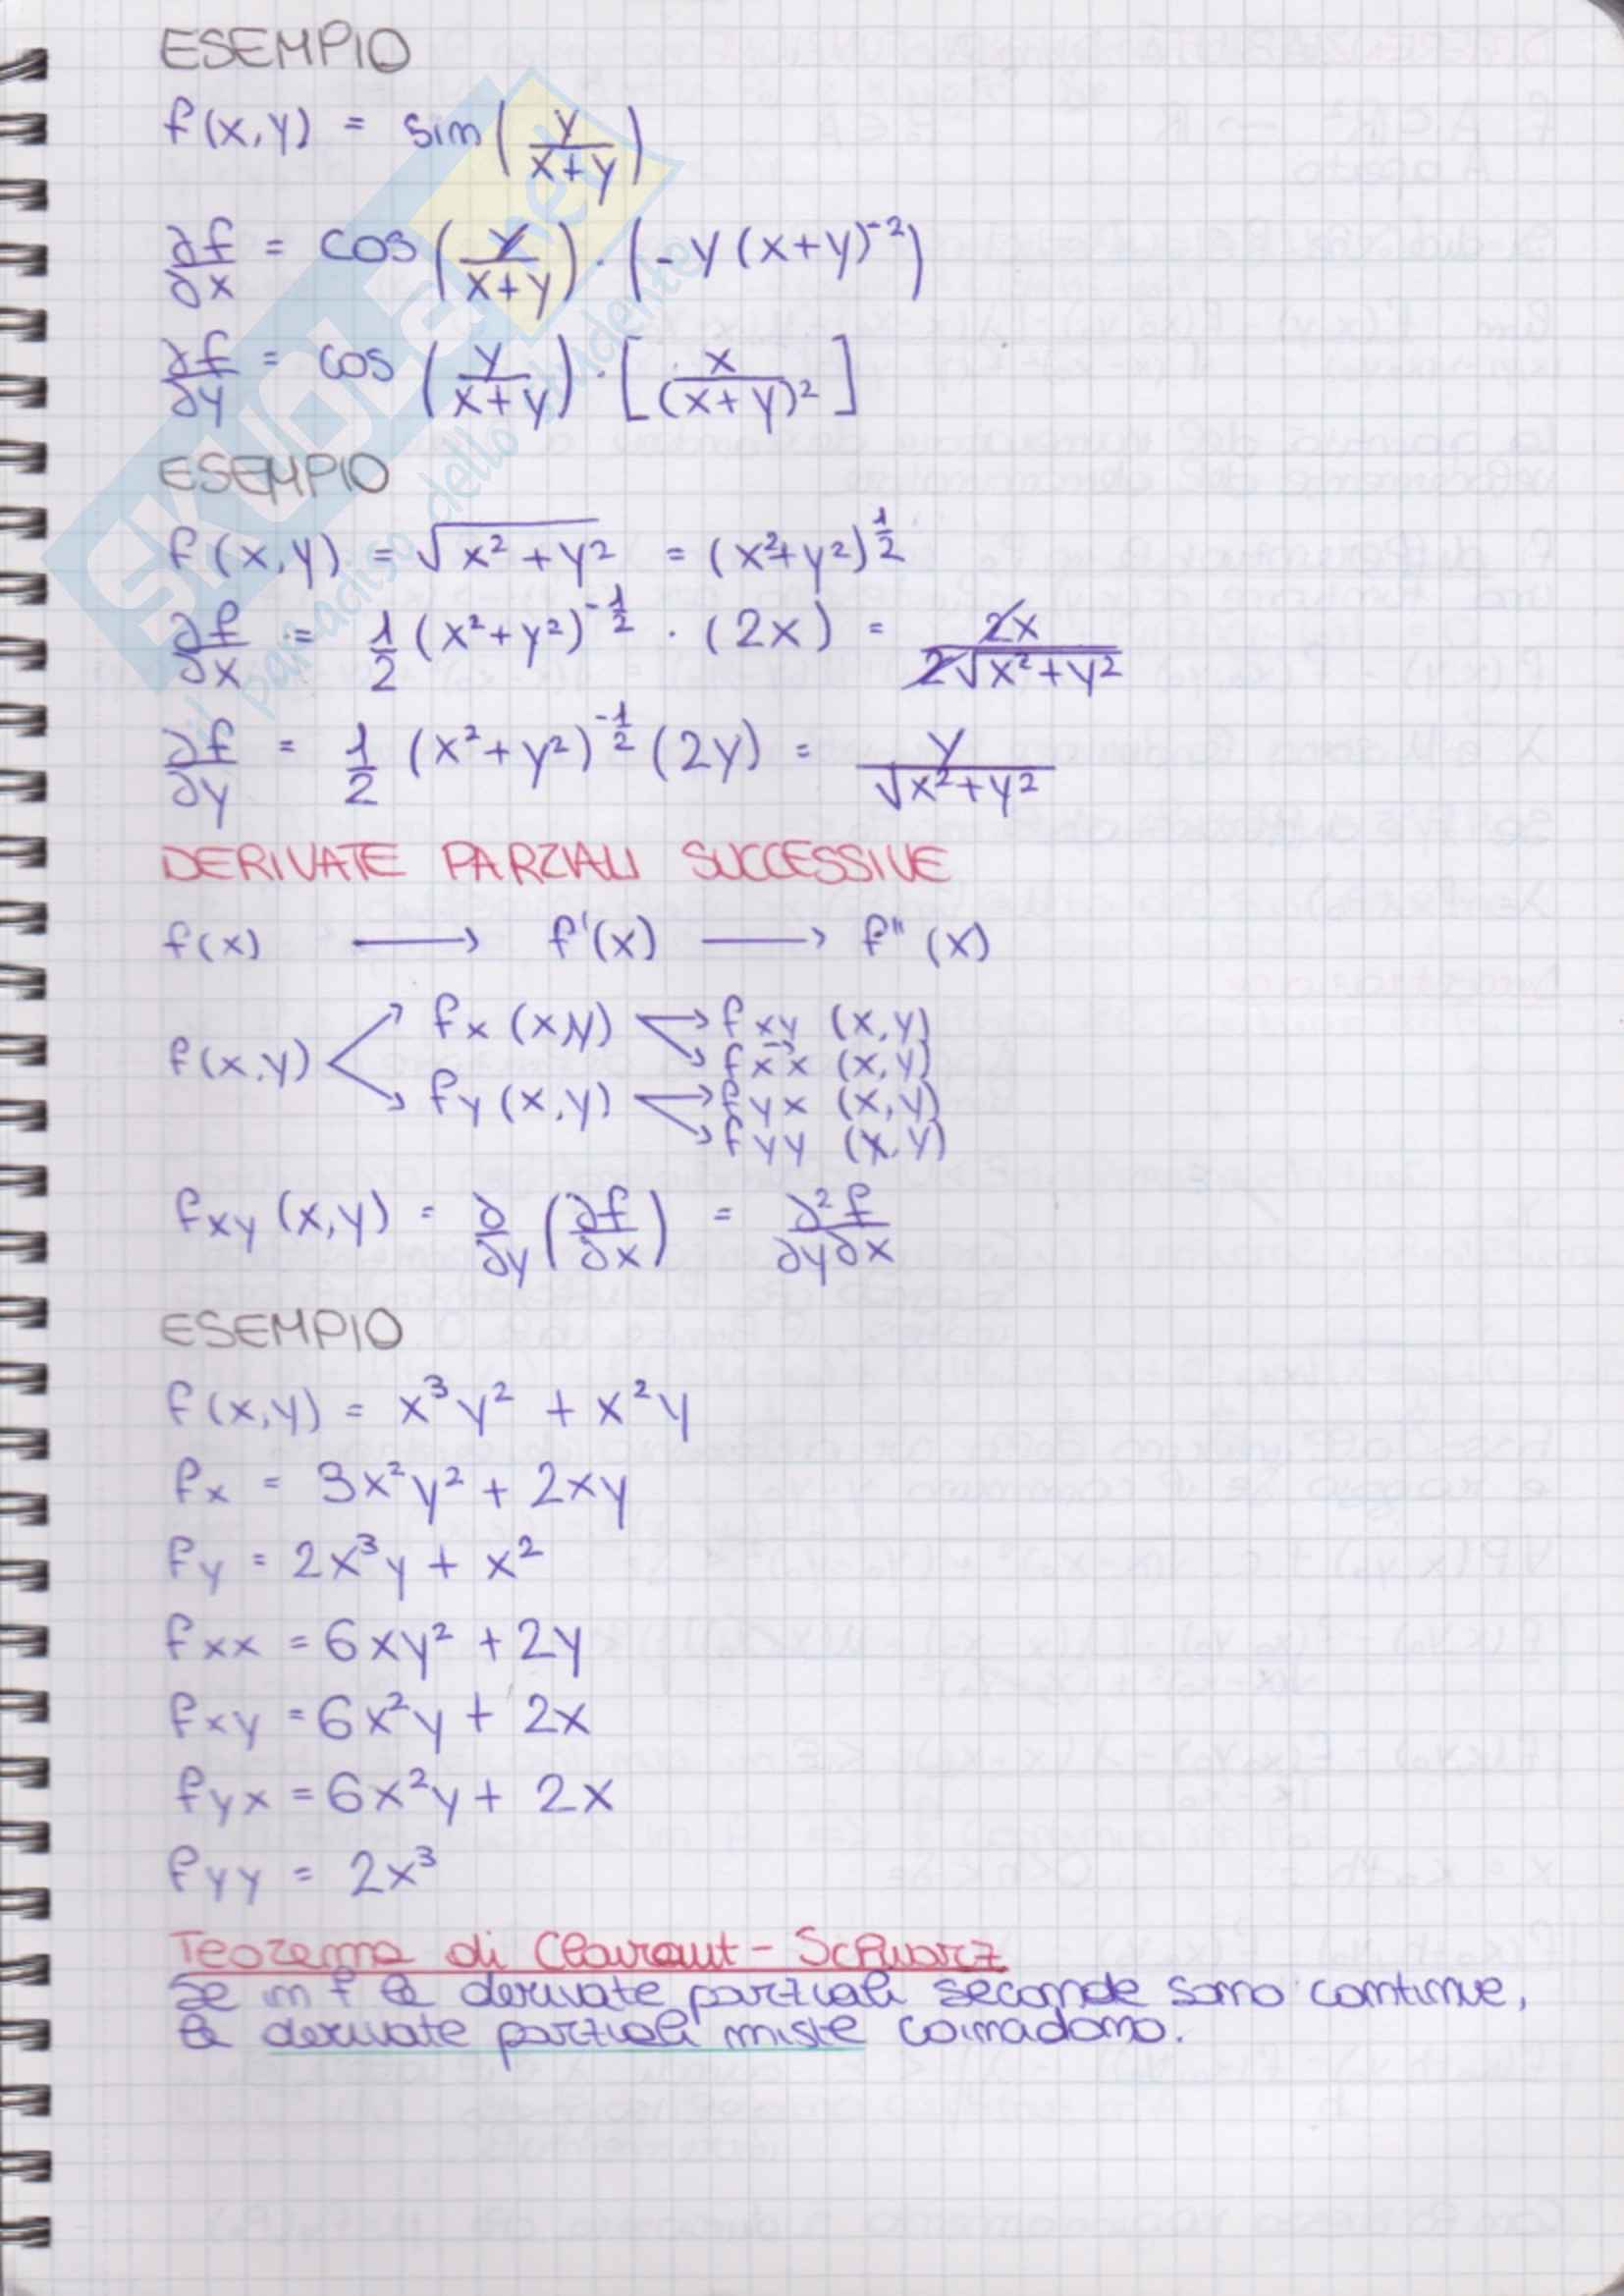 ESEMPIO
f(x,y) = sin(y/(x+y))
∂f/∂x = cos(y/(x+y)) · (-y(x+y)⁻²)
∂f/∂y = cos(y/(x+y)) · [x/(x+y)²]
ESEMPIO
f(x,y) = √(x²+y²) = (x²+y²)^(1/2)
∂f/∂x = 1/2 (x²+y²)^(-1/2) · (2x) = 2x/(2√(x²+y²))
∂f/∂y = 1/2 (x²+y²)^(-1/2) (2y) = y/√(x²+y²)
DERIVATE PARZIALI SUCCESSIVE
f(x) → f'(x) → f"(x)
fx (x,y) → fxy (x,y)
f(x,y) fxx (x,y)
fy (x,y) → fyx (x,y)
fyy (x,y)
fxy (x,y) = ∂/∂y (∂f/∂x) = ∂²f/∂y∂x
ESEMPIO
f(x,y) = x³y² + x²y
fx = 3x²y² + 2xy
fy = 2x³y + x²
fxx = 6xy² + 2y
fxy = 6x²y + 2x
fyx = 6x²y + 2x
fyy = 2x³
Teorema di Clairaut - Schwarz
Se in f le derivate parziali seconde sono continue,
le derivate parziali miste coincidono.
SKUOLA.net
il paradiso dello studente